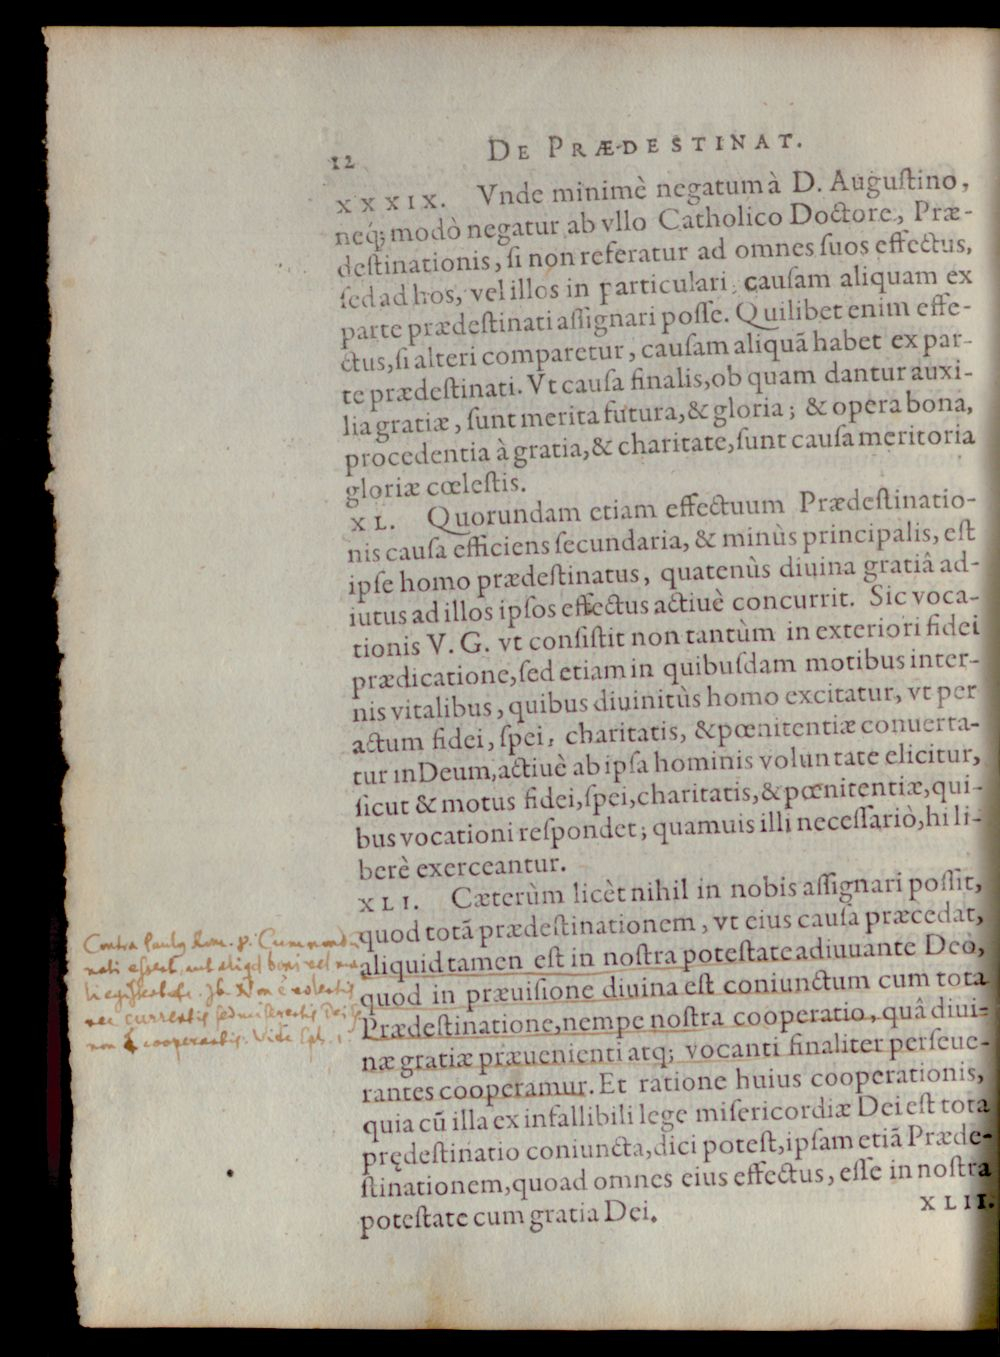 12 DE PRÆDESTINAT.
XXXIX. Vnde minimè negatum à D. Augustino,
neq; modò negatur ab vllo Catholico Doctore, Præ-
destinationis, si non referatur ad omnes suos effectus,
sed ad hos, vel illos in particulari, causam aliquam ex
parte prædestinati assignari posse. Quilibet enim effe-
ctus, si alteri comparetur, causam aliquã habet ex par-
te prædestinati. Vt causa finalis, ob quam dantur auxi-
lia gratiæ, sunt merita futura, & gloria; & opera bona,
procedentia à gratia, & charitate, sunt causa meritoria
gloriæ cœlestis.
XL. Quorundam etiam effectuum Prædestinatio-
nis causa efficiens secundaria, & minùs principalis, est
ipse homo prædestinatus, quatenùs diuina gratiâ ad-
iutus ad illos ipsos effectus actiuè concurrit. Sic voca-
tionis V. G. vt consistit non tantùm in exteriori fidei
prædicatione, sed etiam in quibusdam motibus inter-
nis vitalibus, quibus diuinitùs homo excitatur, vt per
actum fidei, spei, charitatis, & pœnitentiæ conuerta-
tur in Deum, actiuè ab ipsa hominis voluntate elicitur,
sicut & motus fidei, spei, charitatis, & pœnitentiæ, qui-
bus vocationi respondet; quamuis illi necessariò, hi li-
berè exerceantur.
XLI. Cæterùm licèt nihil in nobis assignari possit,
quod totã prædestinationem, vt eius causa præcedat,
aliquid tamen est in nostra potestate adiuuante Deo,
quod in præuisione diuina est coniunctum cum tota
Prædestinatione, nempe nostra cooperatio, quâ diui-
næ gratiæ præuenienti atq; vocanti finaliter perseue-
rantes cooperamur. Et ratione huius cooperationis,
quia cũ illa ex infallibili lege misericordiæ Dei est tota
prędestinatio coniuncta, dici potest, ipsam etiã Præde-
stinationem, quoad omnes eius effectus, esse in nostra
potestate cum gratia Dei.
XLII.
Contra Rom. 9. Cum nondu
nati essent, aut aliqd boni vel ma
li egissent
nec currentis sed miserentis Dei
non cooperantis. Vide Eph. 1.